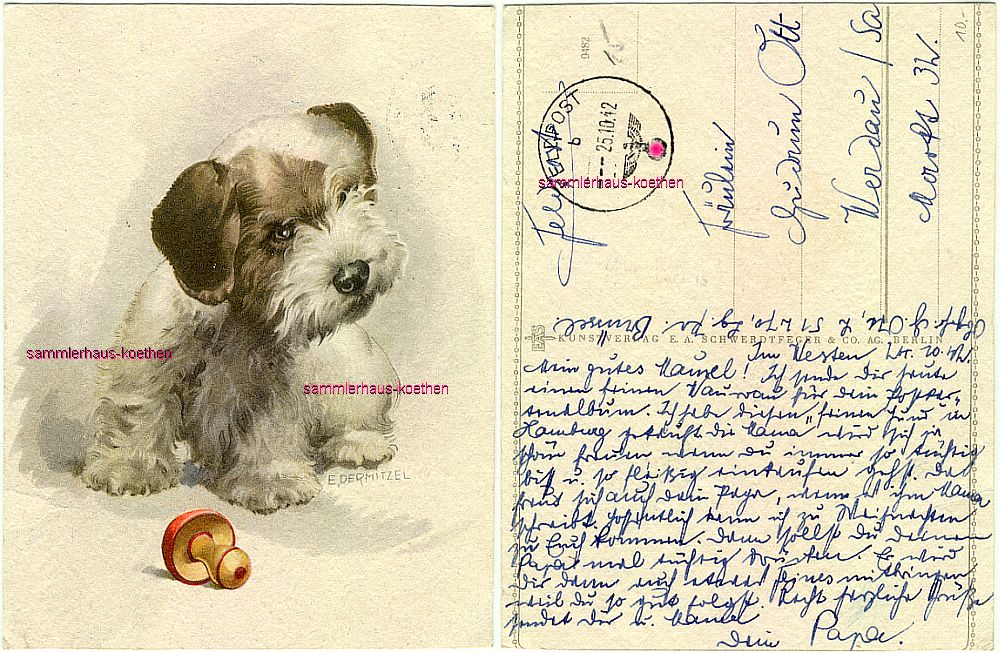 sammlerhaus-koethen
sammlerhaus-koethen
E.DERMITZEL
10.-
9482
15
Feldpost
FELDPOST
b
25.10.42
sammlerhaus-koethen
Fräulein
Gudrun Ott
Werdau / Sa
Markt 32.
KUNSTVERLAG E. A. SCHWERDTFEGER & CO. AG. BERLIN
EAS
Im Westen, 24.10.42.
Mein gutes Mausel! Ich sende dir heute
einen feinen Wauwau für dein Postkar-
tenalbum. Ich habe diesen feinen Hund in
Hamburg gekauft. die Mama wird sich ja
schön freuen wenn du immer so tüchtig
bist u. so fleißig einkaufen gehst. Da
freut sich auch dein Papa, wenn es ihm Mama
schreibt. Hoffentlich kann ich zu Weihnachten
zu Euch kommen. Dann sollst du deinen
Papa mal tüchtig drücken. Er wird
dir dann auch etwas Feines mitbringen
weil du so gut folgst. Recht herzliche Grüße
sendet dir u. Mama
dein Papa.